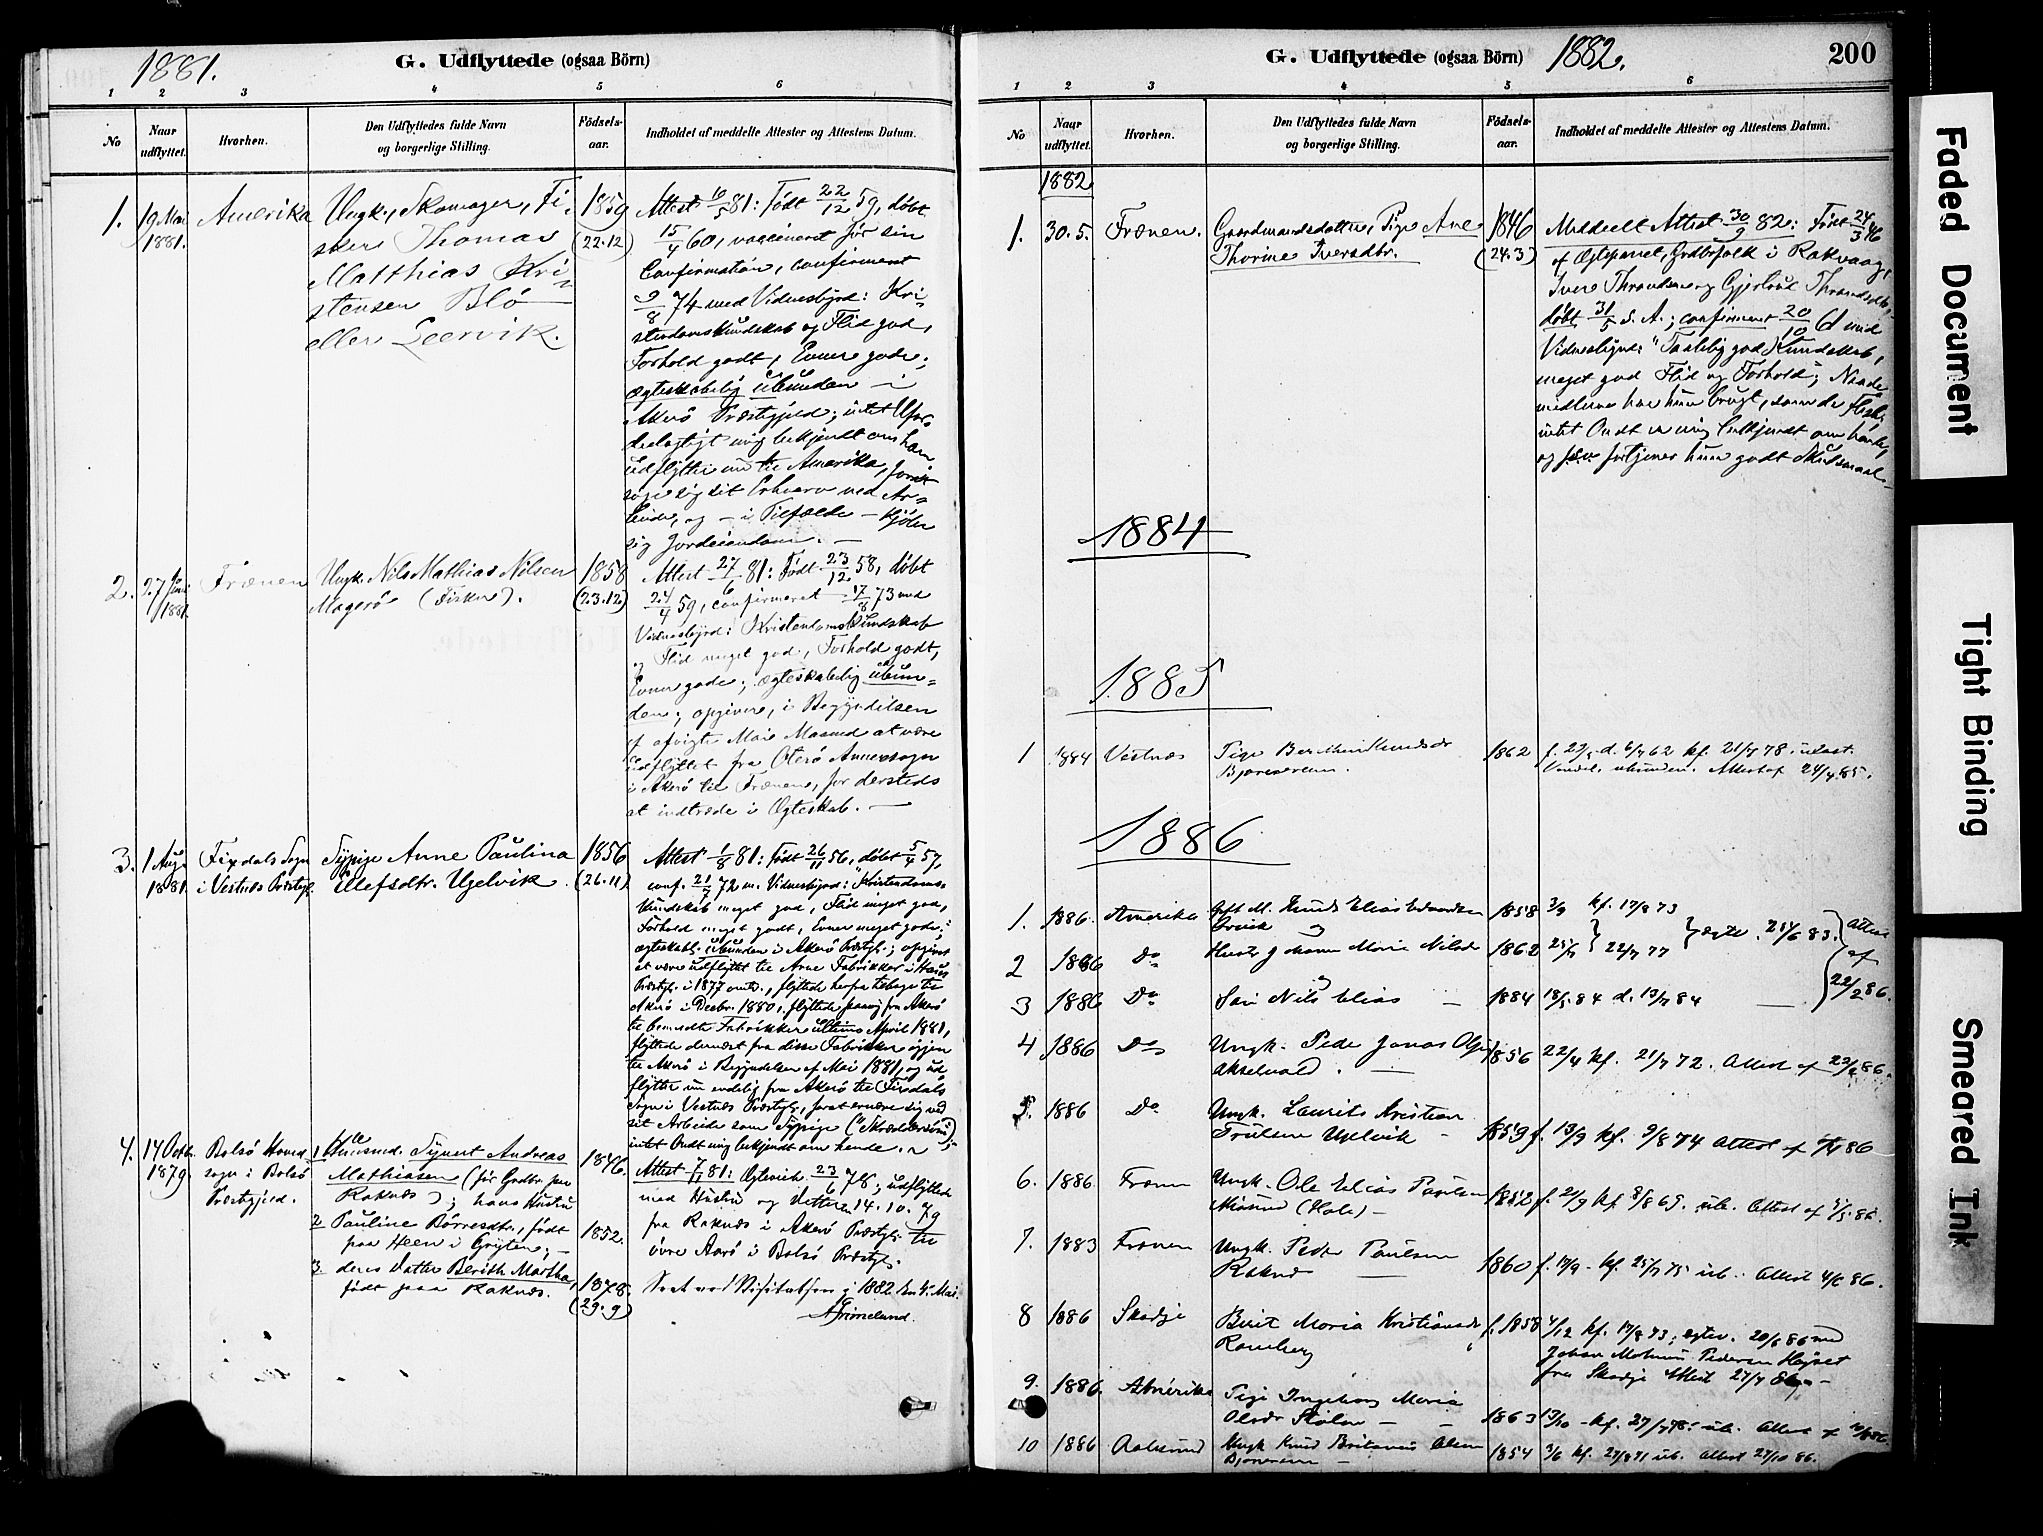 1881.
G. Udflyttede (ogsaa Börn)
1 2 3 4 5 6
No
Naar udflyttet.
Hvorhen.
Den Udflyttedes fulde Navn og borgerlige Stilling.
Födsels-aar.
Indholdet af meddelte Attester og Attestens Datum.
1. 19 Mai 1881.
Amerika
Ungk., Skomager, Fi-
sker Thomas
Matthias Kri-
stensen Blö
eller Leervik.
1859
(22.12)
Attest 10/5 81: Född 22/12 59, döbt
15/4 60, vaccineret för sin
Confirmation, confirmeret
9/8 74 med Vidnesbyrd: Kri-
stendomskundskab og Flid god,
Forhold godt, Evner gode;
ægteskabelig ubunden i
Akerö Præstegjeld; intet Ufor-
delagtigt mig bekjendt om ham
udflytter nu til Amerika, for at
söge sig sit Erhverv ved Ar-
beide, og – i Tilfælde – kjöbe
sig Jordeiendom. –
2. 27 Juni 1881
Frænen
Ungk. Nils Mathias Nilsen
Magerö (Fisker).
1858
(23.12)
Attest 27/6 81: Född 23/12 58, döbt
24/4 59, confirmeret 17/8 73 med
Vidnesbyrd: Kristendomskundskab
og Flid meget god, Forhold godt,
Evner gode; ægteskabelig ubun-
den; opgiver, i Begyndelsen
af afvigte Mai Maaned at være
udflyttet fra Oterö Annexsogn
i Akerö til Frænen, for dersteds
at indtræde i Ægteskab. –
3. 1 Aug. 1881
Fixdals Sogn
i Vestnes Præstgj.
Sypige Anne Paulina
Ellefsdtr. Ugelvik.
1856
(26.11)
Attest 1/8 81: Född 26/11 56, döbt 5/4 57,
conf. 21/7 72 m. Vidnesbyrd: "Kristendoms-
kundskab meget god, Flid meget god,
Forhold meget godt, Evner meget gode;
ægteskabl. ubunden i Akerö Præstgj.; opgivet
at være udflyttet til Arne Fabrikker i Haus
Præstgj. i 1877 omtr., flyttede herfra tilbage til
Akerö i Decbr. 1880, flyttede paany fra Akerö
til benævnte Fabrikker ultimo April 1881,
flyttede dernæst fra disse Fabrikker igjen
til Akerö i Begyndelsen af Mai 1881, og ud-
flytter nu endelig fra Akerö til Fixdals
Sogn i Vestnes Præstgj., for at ernære sig ved
sit Arbeide som Sypige
intet Ondt mig bekjendt om hende.
4. 14 Octbr. 1879.
Bolsö Hoved-
sogn i Bolsö
Præstegjeld.
1 Huusmd. Syvert Andreas
Mathiasen (för Grdbr. paa
Raknæs); hans Hustru
2 Pauline Börresdtr., födt
paa Heen i Gryten; –
3. deres Datter Berith Martha,
födt paa Raknæs.
1846.
1852.
1878.
(29.9)
Attest 7/1 81: Ægteviet 23/6 78; udflyttede
med Hustru og Datter 14.10.79
fra Raknæs i Akerö Præstgj. til
övre Aarö i Bolsö Præstgj.
Seet ved Visitatsen i 1882 den 4. Mai.
AGrimelund.
G. Udflyttede (ogsaa Börn)
1882.
200
1 2 3 4 5 6
No
Naar udflyttet.
Hvorhen.
Den Udflyttedes fulde Navn og borgerlige Stilling.
Födsels-aar.
Indholdet af meddelte Attester og Attestens Datum.
1882
1. 30.5.
Frænen.
Gaardmandsdatter, Pige Ane
Thorine Iversdtr.
1846
(24.3)
Meddeelt Attest 30/9 82: Födt 24/3 46
af Ægteparret, Grdbrfolk i Rakvaag,
Iver Throndsen og Gjertrud Throndsdtr.,
döbt 31/5 s. A.; confirmeret 20/10 61 med
Vidnesbyrd: "Taalelig god Kundskab,
meget god Flid og Forhold"; Naade-
midlerne har hun brugt, som de fleste;
intet Ondt er mig bekjendt om hende,
og forövr. fortjener hun godt Skudsmaal.
1884
1885
1 1884 Vestnæs
Pige
1862
f. 27/5 d. 6/7 62 kf. 21/7 78. ulast.
Vandel. ubunden. Attest af 24/4 85.
1886
1. 1886. Amerika
Gift M. Knud Elias
og
1858 3/9 kf. 17/8 73
2 1886 Do
Hustr Johanne Marie Nilsd
og
1862 25/7 22/7 77
ægtev. 25/6 83.
Attest
af
22/2 86.
3 1886 Do
Sön Nils Elias –
1884 18/5 84 d. 13/7 84 –
4 1886 Do
Ungk. Peder Jonas
Akselvold. –
1856 22/4 kf. 21/7 72. Attest af 23/2 86.
5. 1886 Do
Ungk. Laurits Kristian
Trulsen Ugelvik –
1859 f. 13/9 kf. 9/8 74 Attest af
86
6. 1886 Frænen
Ungk. Ole Elias Paulsen
Måsund (Hole) –
1852 f. 2/9 kf. 8/8 69. ub. Attest af
7. 1883 Frænen
Ungk. Peder Paulsen
Raknes –
1860 f. 17/9 – kf. 25/7 75 ub. Attest 4/6 86.
8 1886 Skodje
Berit Maria Kristiansdr
Ramberg
f. 1858 4/12 kf. 17/8 73; ægtev. 20/6 86 med
Johan Pedersen
fra Skodje Attest 27/7 86 –
9. 1886. Amerika
Pige Ingeborg Maria
Olsdr Stölen –
1863 13/10 – kf. 27/7 78. ub. Attest af
10 1886 Aalesund
Ungk Knud Olsen
1854 3/6 kf. 27/8 71 ub. Attest 27/10 86.
Faded Document
Tight Binding
Smeared Ink